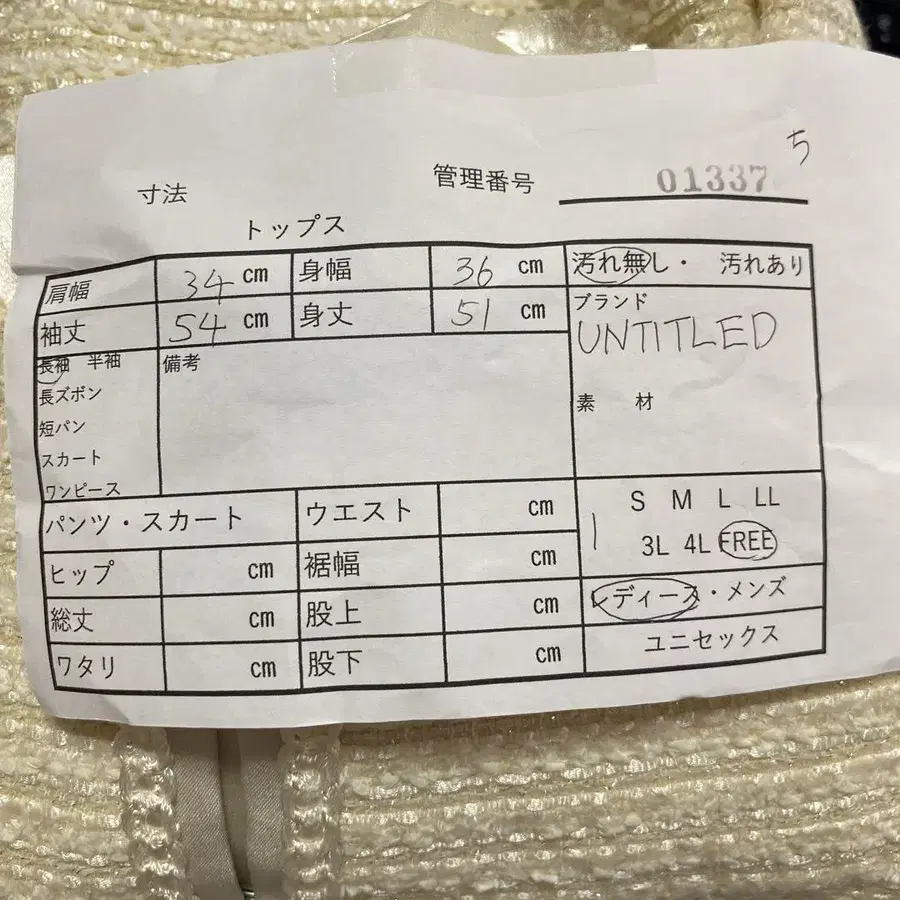 ち
寸法 管理番号 01337
トップス
肩幅 34 cm 身幅 36 cm 汚れ無し・ 汚れあり
袖丈 54 cm 身丈 51 cm ブランド
UNTITLED
長袖 半袖 備考
長ズボン
素 材
短パン
スカート
ワンピース
パンツ・スカート ウエスト cm S M L LL
ヒップ cm 裾幅 cm 3L 4L FREE
総丈 cm 股上 cm レディース・メンズ
ワタリ cm 股下 cm ユニセックス